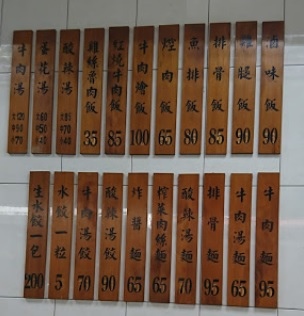 滷味飯 90
雞腿飯 90
排骨飯 85
魚排飯 80
焢肉飯 65
牛肉燴飯 100
紅燒牛肉飯 85
雞絲骨肉飯 35
酸辣湯 大80 中70 小40
蛋花湯 大60 中50 小40
牛肉湯 大120 中90 小70
牛肉麵 95
牛肉湯麵 65
排骨麵 95
酸辣湯麵 70
榨菜肉絲麵 65
炸醬麵 65
酸辣湯餃 90
牛肉湯餃 70
水餃一粒 5
生水餃一包 200